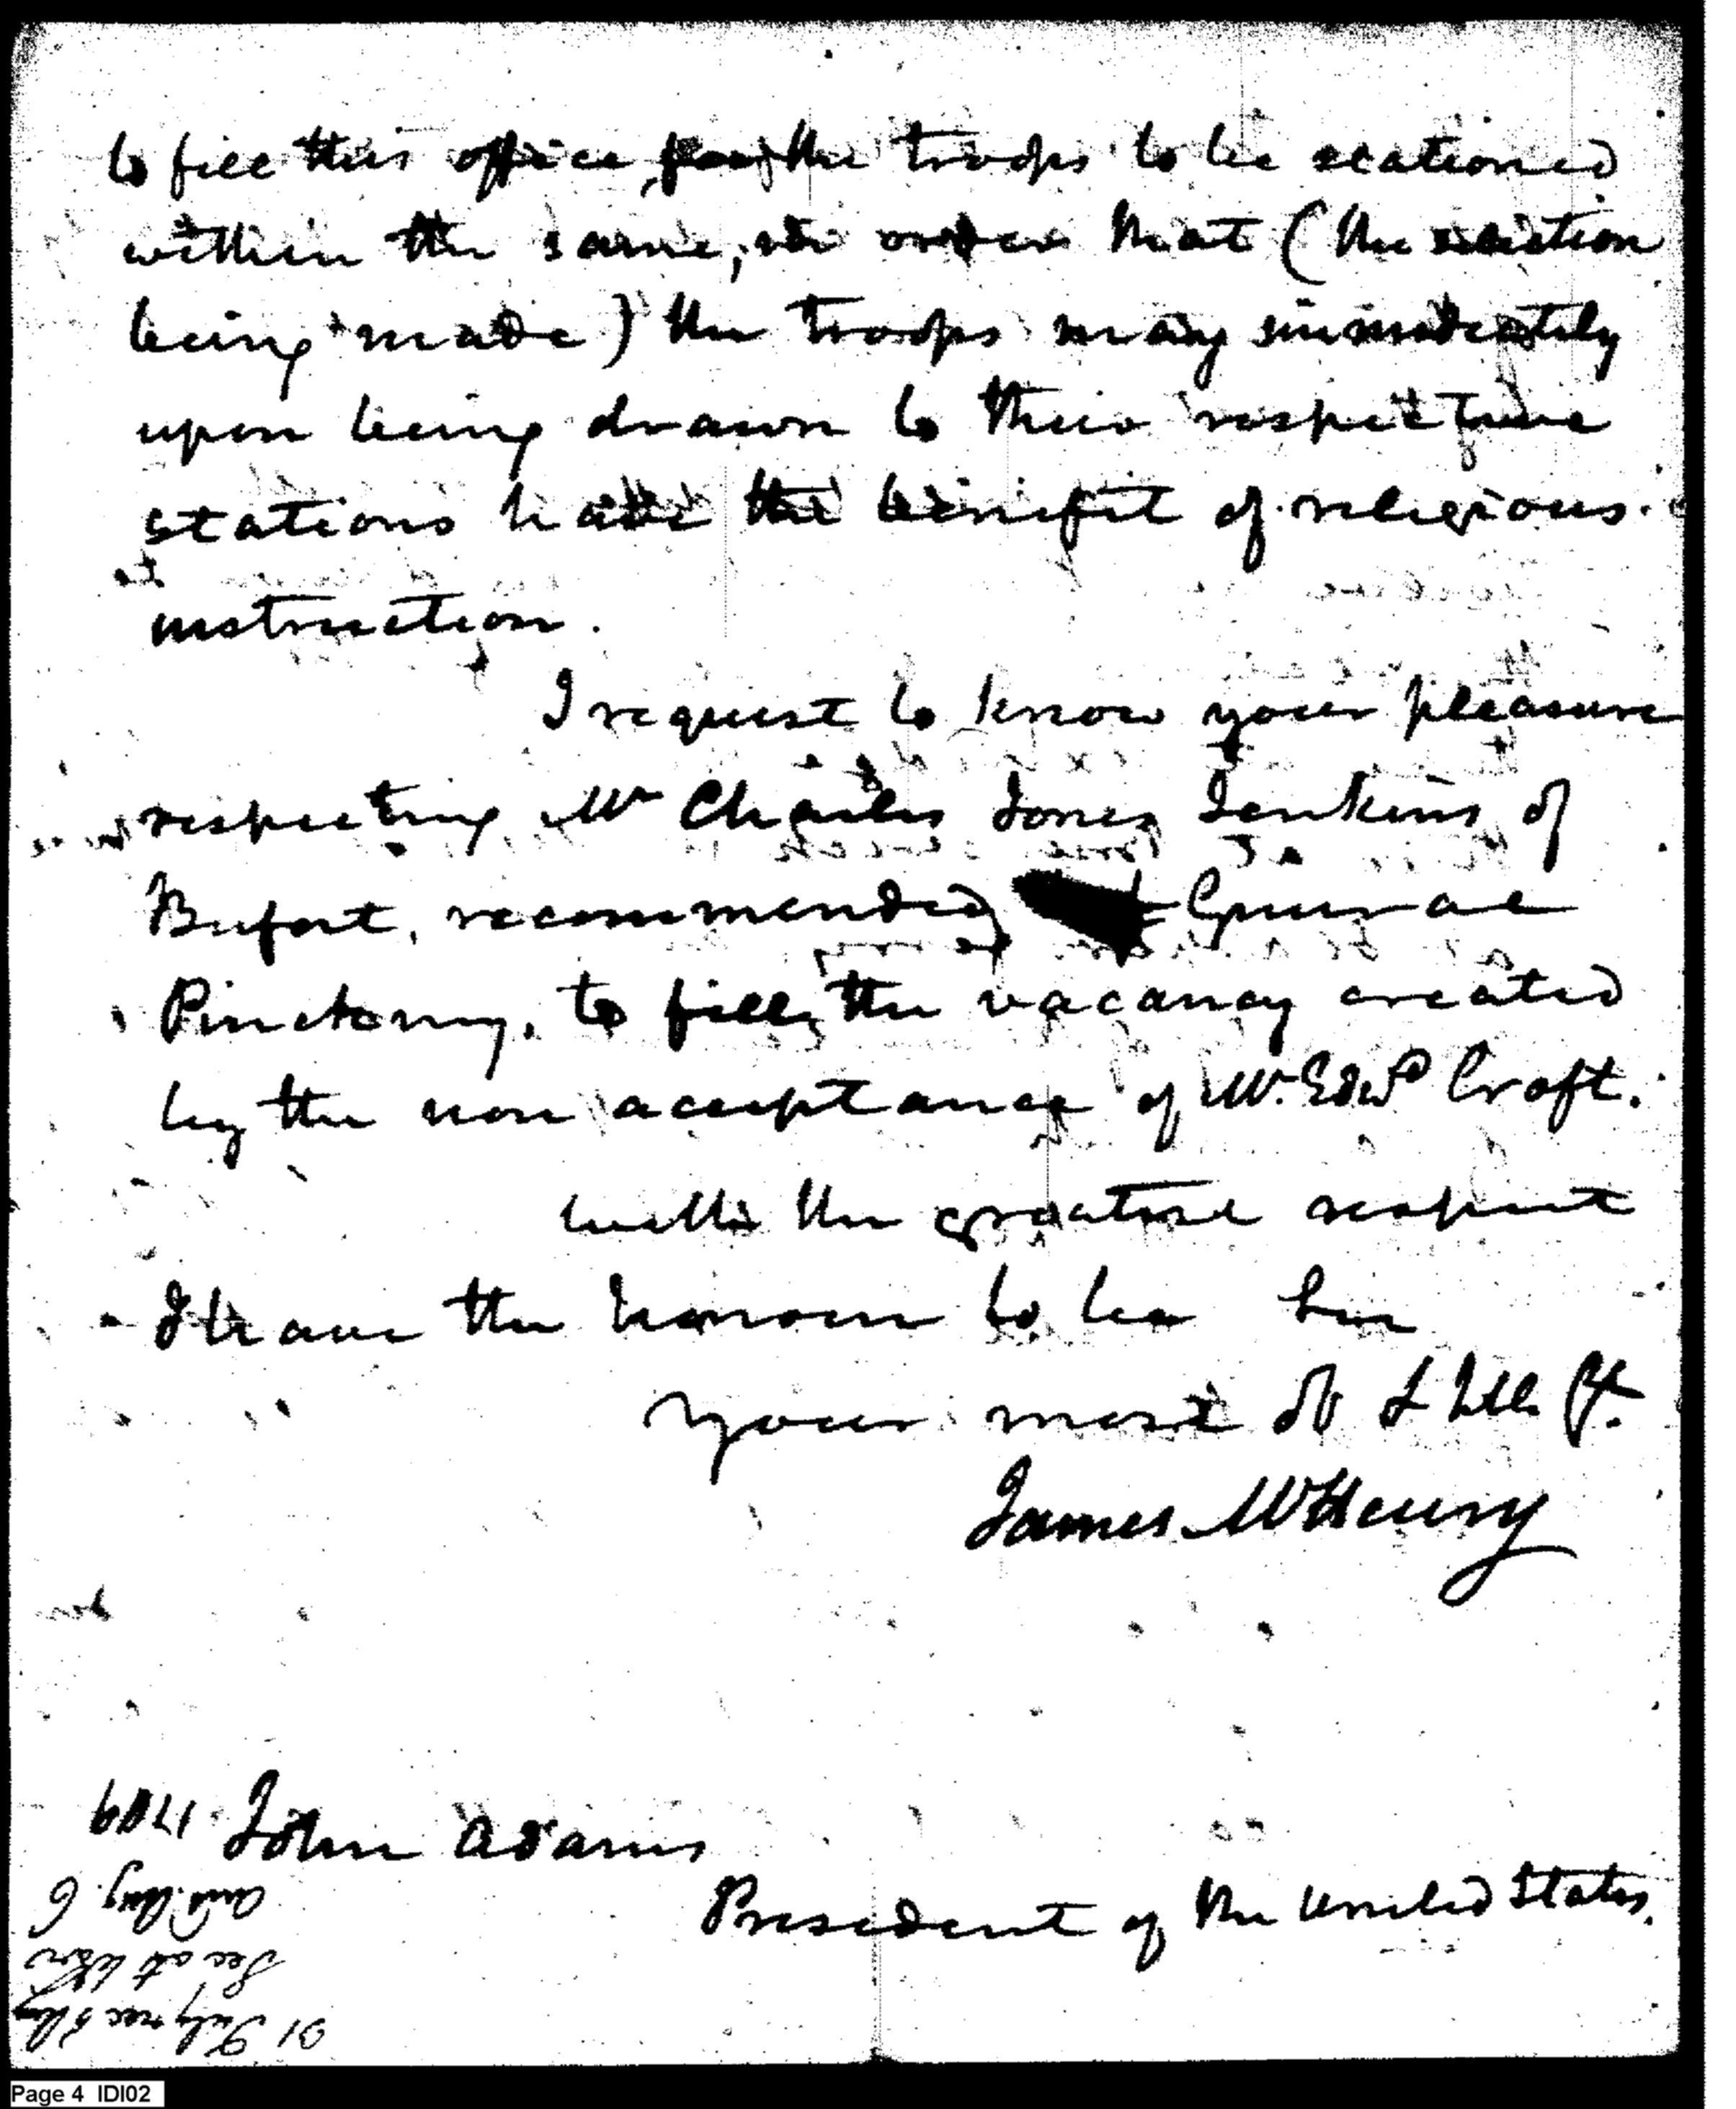 to fill this office, for the troops to be stationed
within the same, in order that (the selection
being made) the troops may immediately
upon being drawn to their respective
stations have the benefit of religious
instruction.
I request to know your pleasure
respecting Mr Charles Jones Jenkins of
Bufort, recommended General
Pinckney, to fill the vacancy created
by the non acceptance of Mr. Edwd Croft.
With the greatest respect
I have the honour to be Sir
your most Ob & hble St.
James McHenry
John Adams
President of the United States.
31 July rec 5 Aug
Sec at War
ansd. Aug. 6
1799
Page 4 IDI02